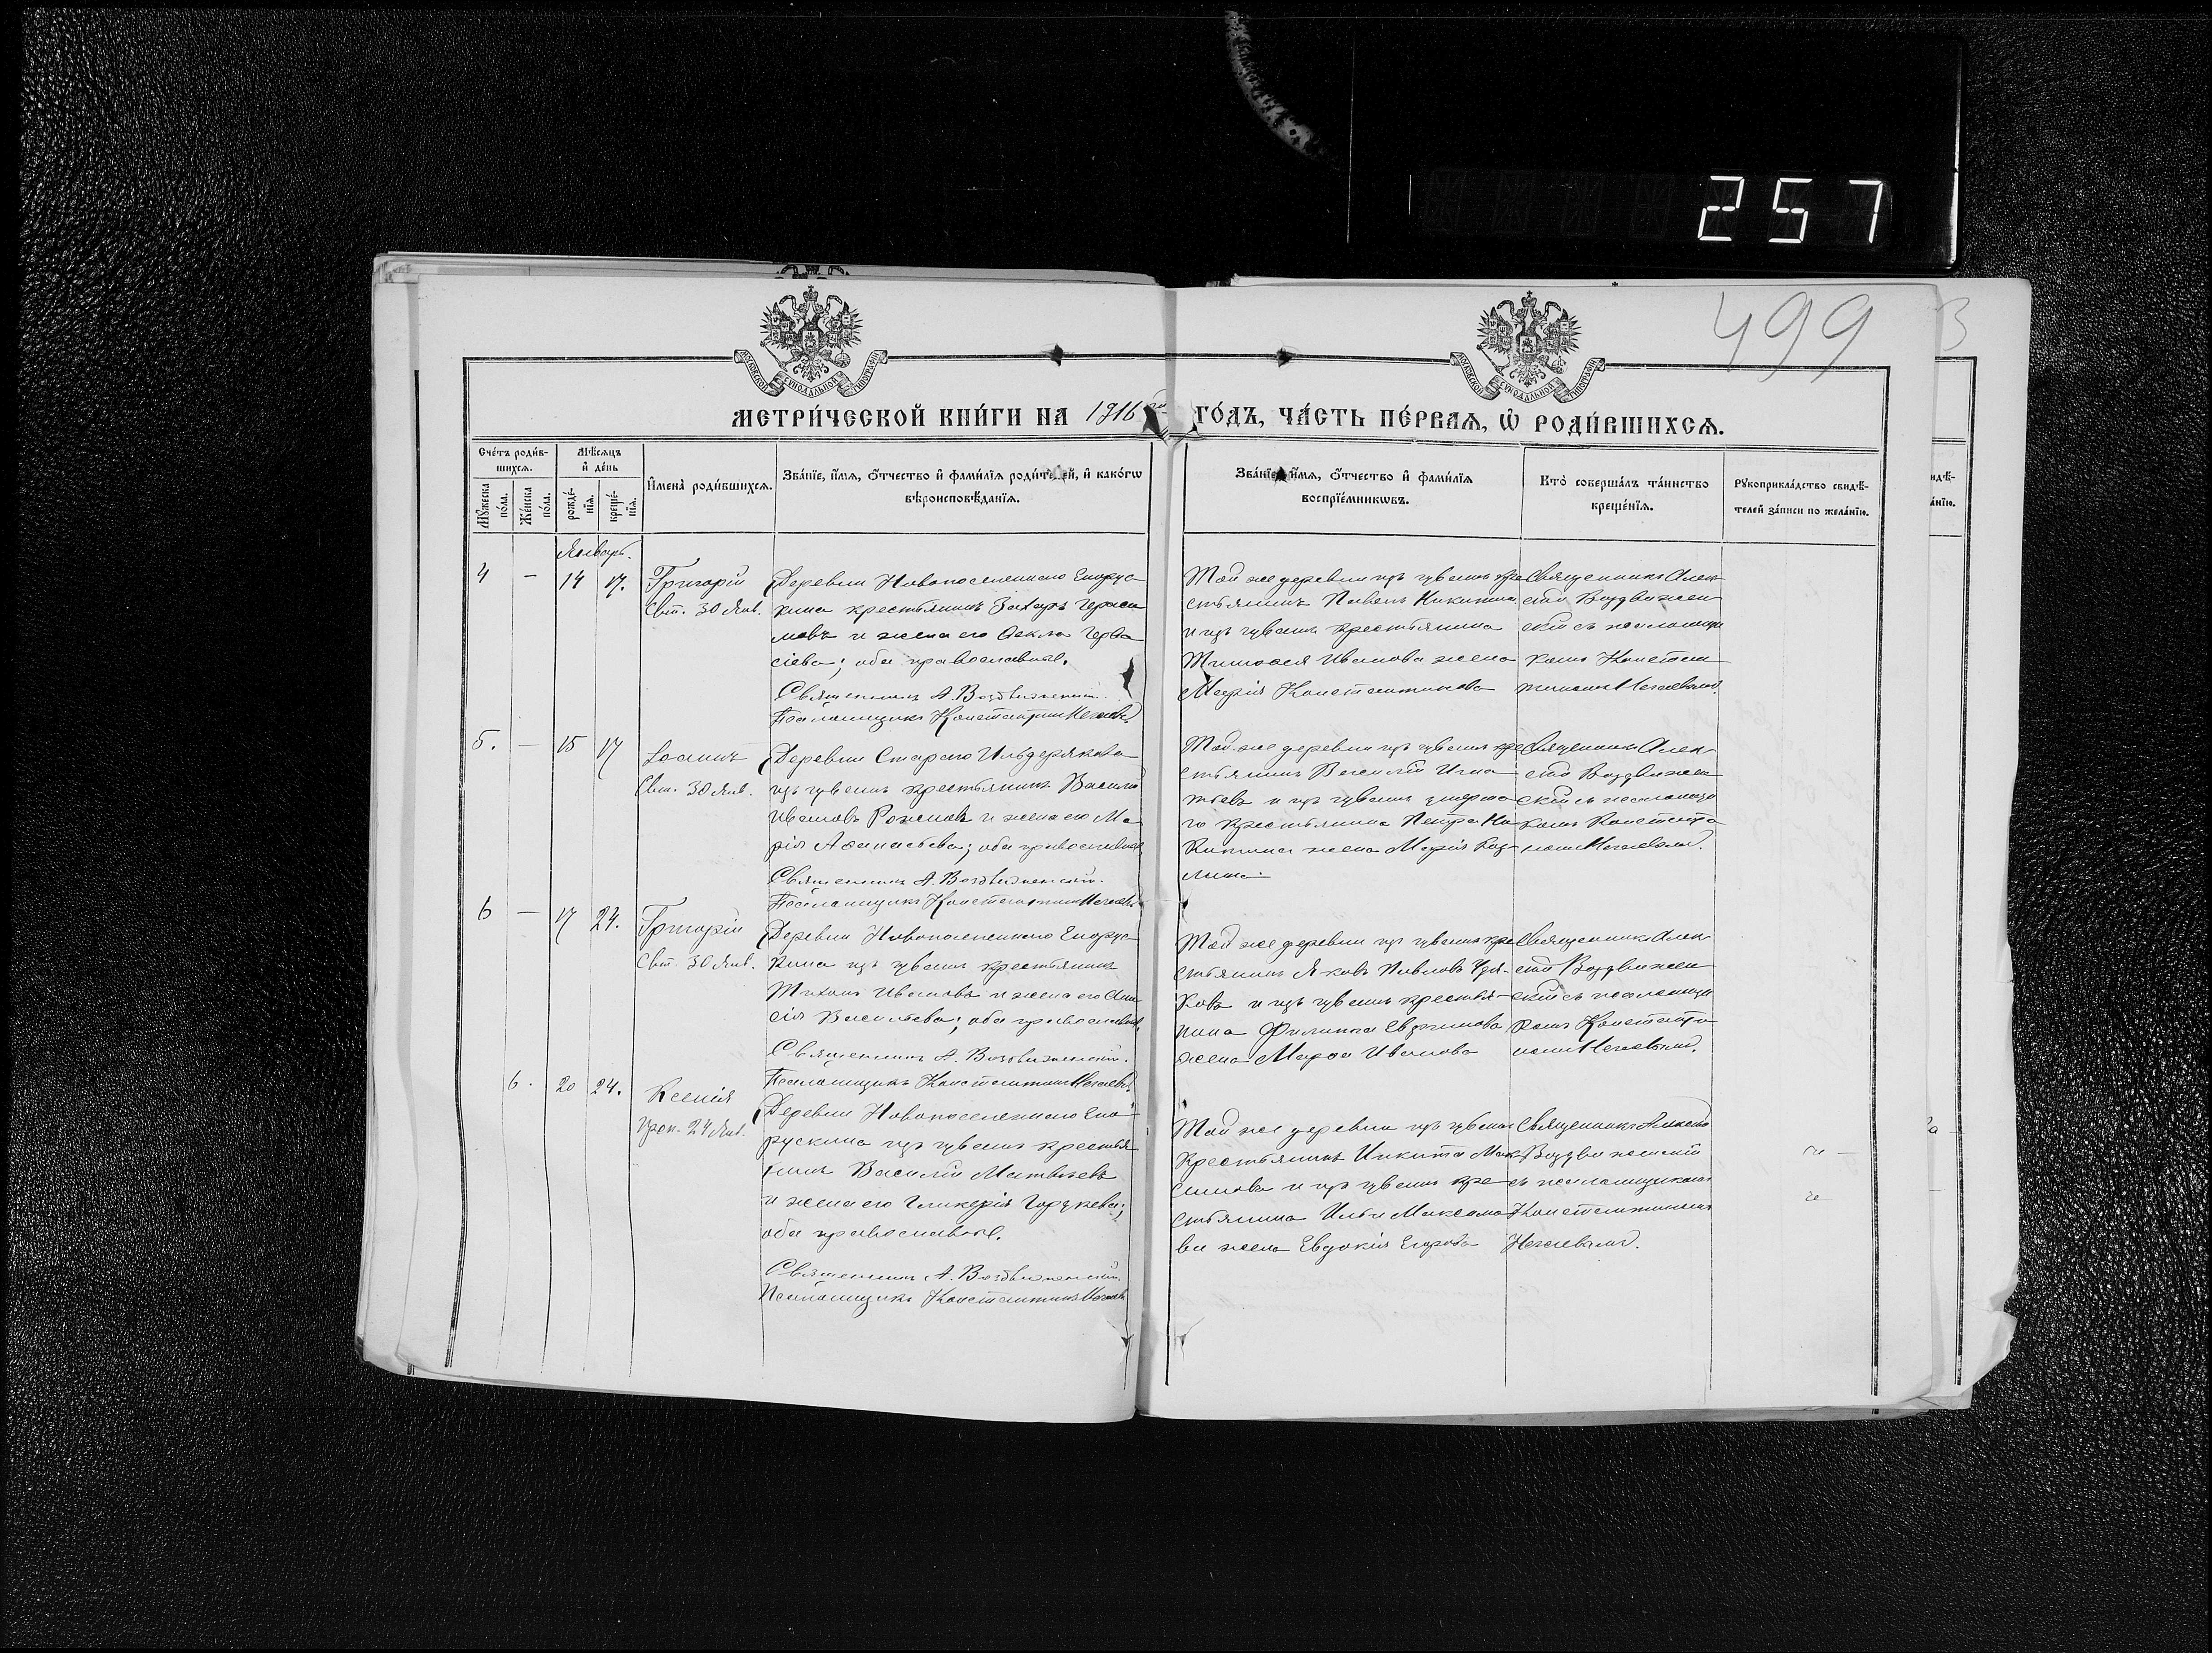 257
499
3
МОСКОВСКОЙ СѴНОДАЛЬНОЙ ТИПОГРАФІИ
МОСКОВСКОЙ СѴНОДАЛЬНОЙ ТИПОГРАФІИ
МЕТРИ́ЧЕСКОЙ КНИ́ГИ НА 1916 ГО́ДЪ, ЧА́СТЬ ПЕ́РВАѦ, Ѽ РОДИ́ВШИХСѦ.
Сче́тъ роди́в-
шихсѧ.
Мꙋ́жеска по́ла.
Же́нска по́ла.
Мѣ́сѧцъ и҆ де́нь
рожде́-нїѧ.
креще́-нїѧ.
И҆мена̀ роди́вшихсѧ.
Зва́нїе, и҆́мѧ, ѻ҆́тчество и҆ фами́лїѧ роди́телей, и҆ како́гѡ
вѣ́роисповѣ́данїѧ.
Зва́нїе, и҆́мѧ, ѻ҆́тчество и҆ фами́лїѧ
воспрїе́мникѡвъ.
Кто̀ соверша́лъ та́инство
креще́нїѧ.
Рꙋкоприкла́дство свидѣ́-
телей за́писи по жела́нїю.
Январь.
4 — 14 17. Григорій
Свт. 30 Янв.
Деревни Новопоселеннаго
кина крестьянинъ Захаръ Гераси
мовъ и жена его Ѳекла
сіева; оба православные.
Священникъ А. Воздвиженскій.
Псаломщикъ Константинъ
Той же деревни изъ чувашъ кре
стьянинъ Павелъ Никитинъ
и изъ чувашъ крестьянина
Тимоѳея Иванова жена
Марія Константинова
Священникъ Алек
сѣй Воздвижен
скій съ псаломщи
комъ Констан
тиномъ
5. — 15 17 Іоаннъ
Свт. 30 Янв.
Деревни Стараго Ильдерякова
изъ чувашъ крестьянинъ Василій
Ивановъ Роженовъ и жена его Ма
рія Аѳанасьева; оба православные
Священникъ А. Воздвиженскій.
Псаломщикъ Константинъ
Той же деревни изъ чувашъ кре
стьянинъ Василій Игна
тьевъ и изъ чувашъ умерша
го крестьянина Петра Ни
китина жена Марія
Священникъ Алек
сѣй Воздвижен
скій съ псаломщи
комъ Константи
номъ
6 — 17 24. Григорій
Свт. 30 Янв.
Деревни Новопоселеннаго
кина изъ чувашъ крестьянинъ
Тихонъ Ивановъ и жена его Ани
сія Васильева; оба православные
Священникъ А. Воздвиженскій.
Псаломщикъ Константинъ
Той же деревни изъ чувашъ кре
стьянинъ Яковъ Павловъ
и изъ чувашъ крестья
нина Филиппа Евѳимова
жена Марѳа Иванова
Священникъ Алек
сѣй Воздвижен
скій съ псаломщи
комъ Константи
номъ
6. 20 24. Ксенія
прп. 24 Янв.
Деревни Новопоселеннаго
рускина изъ чувашъ крестья
нинъ Василій Матвѣевъ
и жена его Гликерія
оба православные.
Священникъ А. Воздвиженскій.
Псаломщикъ Константинъ
Той же деревни изъ чувашъ
крестьянинъ Никита Мак
симовъ и изъ чувашъ кре
стьянина Ильи Максимо
ва жена Евдокія Егорова
Священникъ Алексѣй
Воздвиженскій
съ псаломщикомъ
Константиномъ